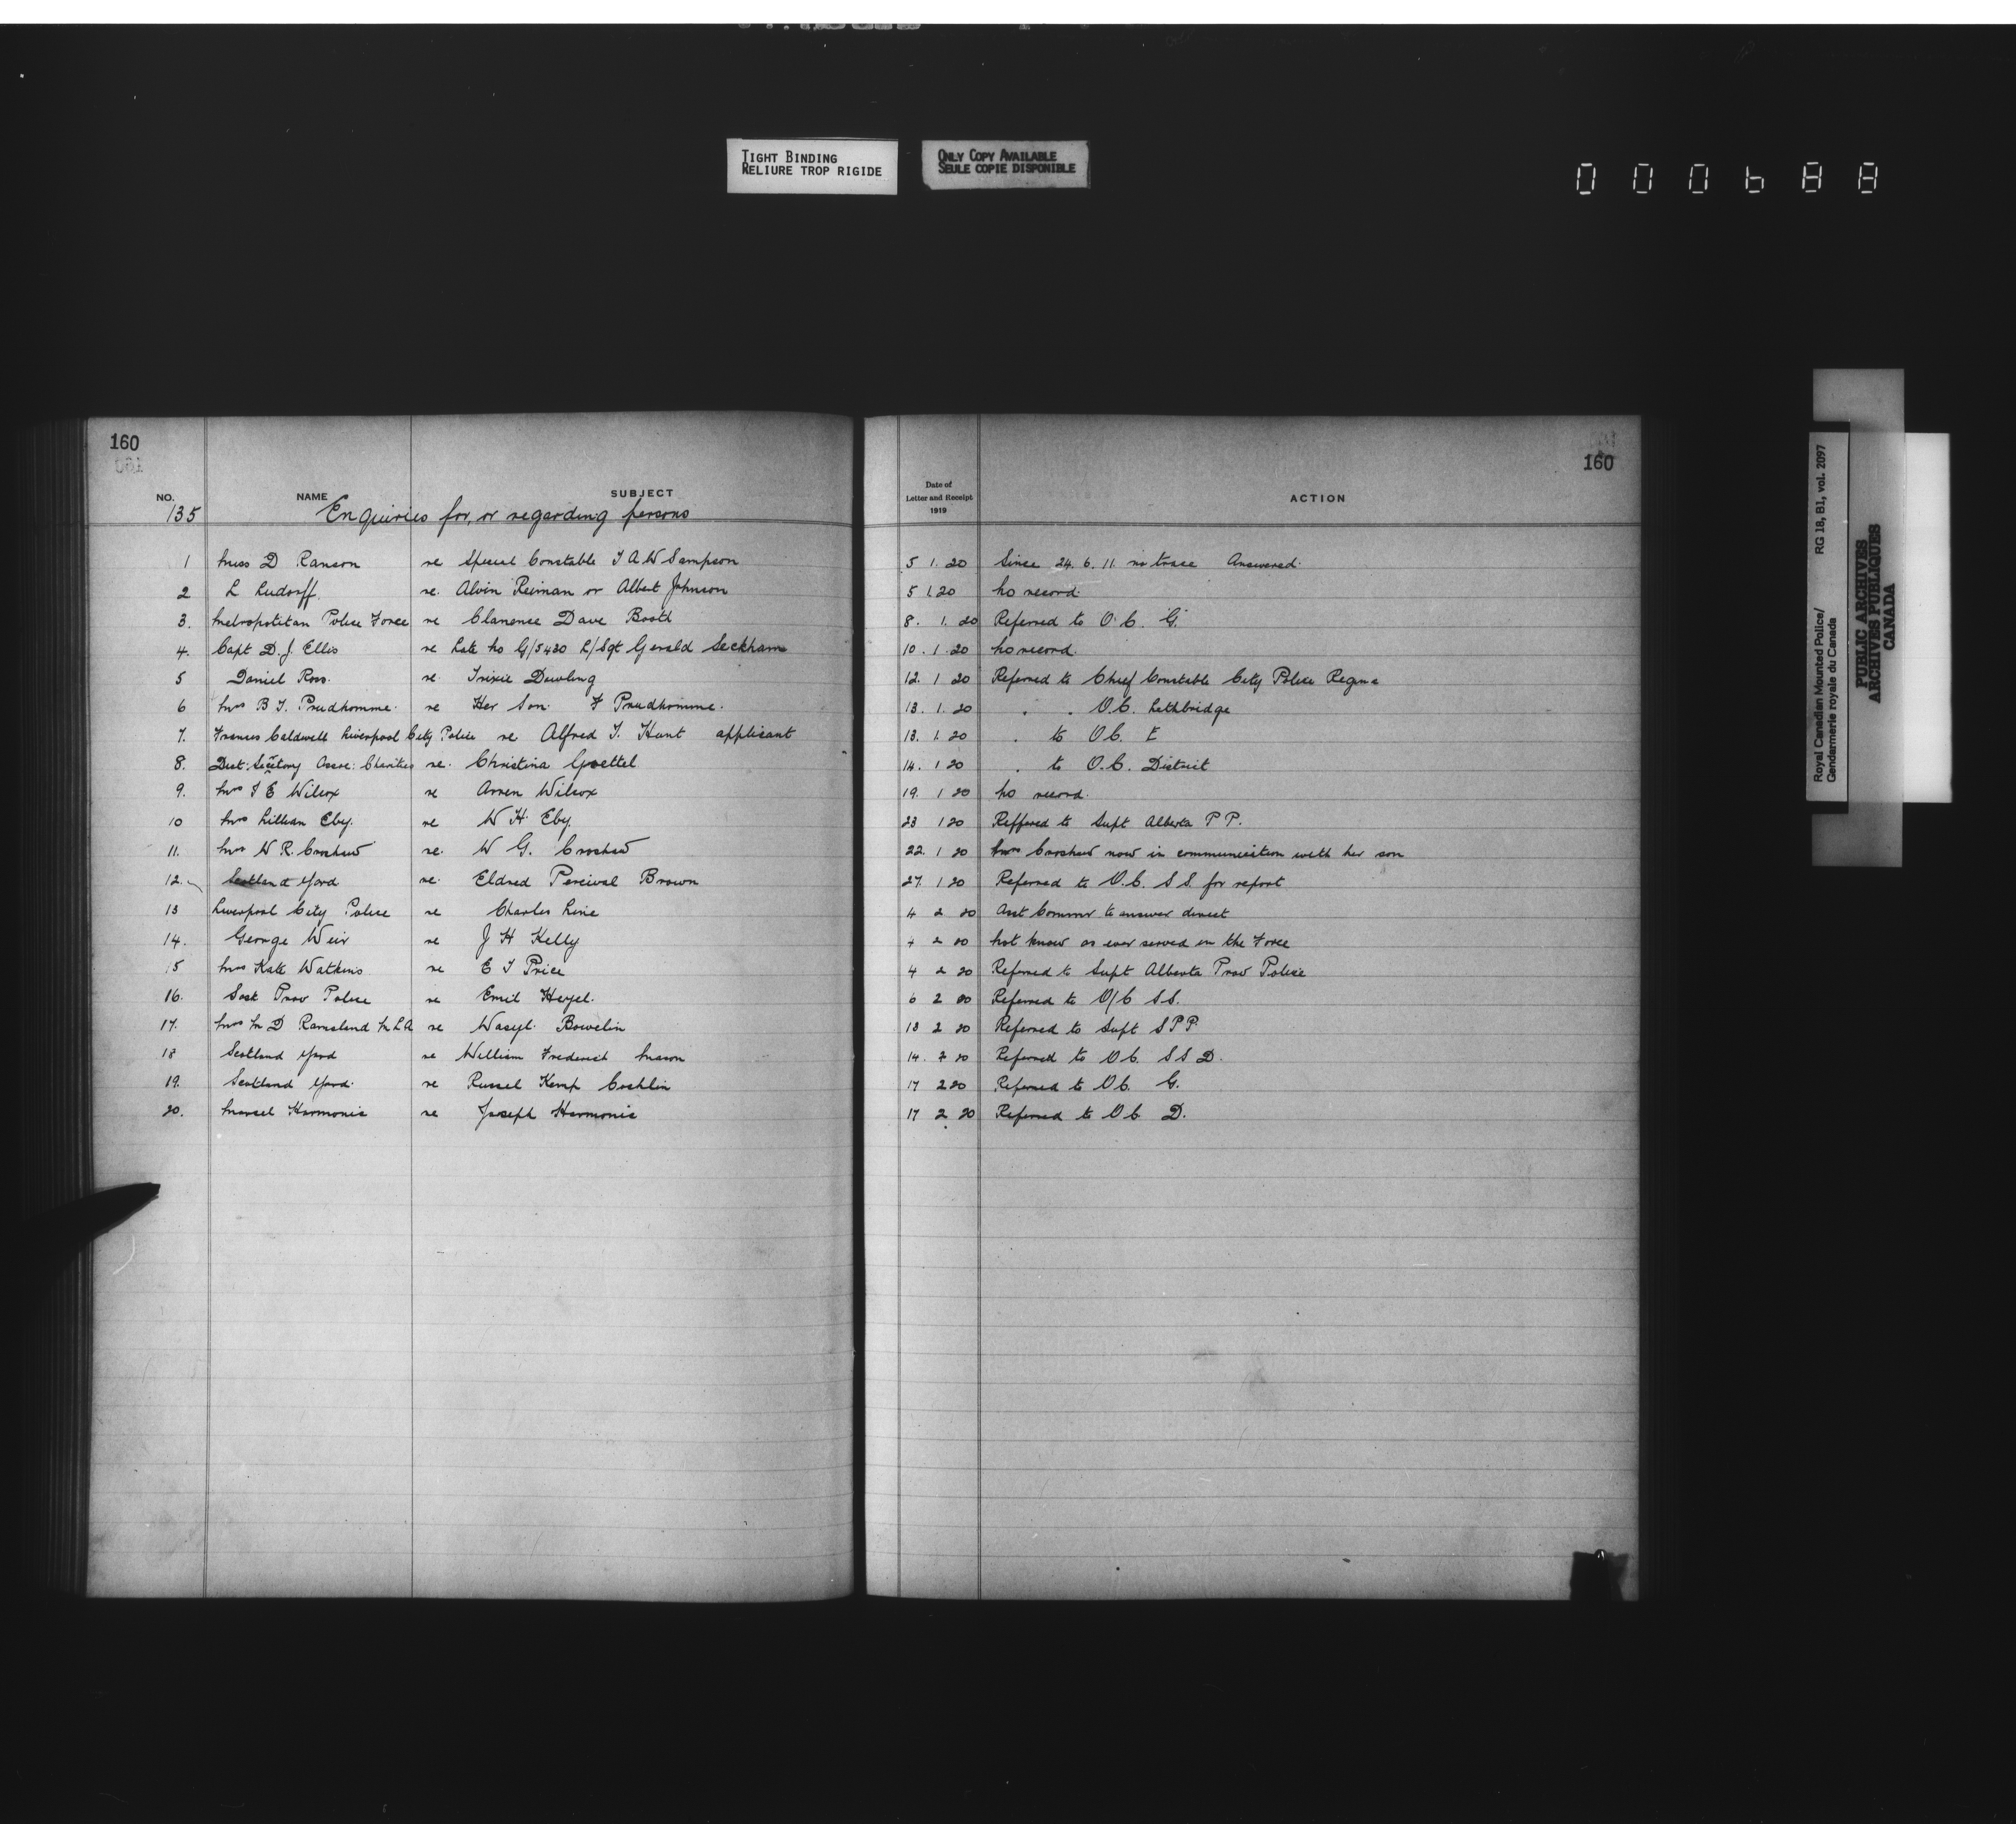 TIGHT BINDING
RELIURE TROP RIGIDE
ONLY COPY AVAILABLE
SEULE COPIE DISPONIBLE
000688
160
160
NO. NAME SUBJECT Date of Letter and Receipt 1919 ACTION
135 Enquiries for, or regarding persons
1 Miss D Ranson re Special Constable T A W Sampson 5 1. 20 Since 24. 6. 11. no trace Answered.
2 L Ludorff. re. Alvin Reiman or Albert Johnson 5 1.20 No record.
3. Metropolitan Police Force re Clarence Dave Booth 8. 1. 20 Referred to O.C. "G"
4. Capt D. J. Ellis re Late No G/5420 L/Sgt Gerald Seckham 10. 1. 20 No record.
5 Daniel Ross. re. Trixie Dowling 12. 1 20 Referred to Chief Constable City Police Regina
6 Mrs B T. Prudhomme. re Her Son F Prudhomme. 13. 1. 20 . . O.C. Lethbridge
7. Francis Caldwell Liverpool City Police re Alfred T. Hunt applicant 13. 1. 20 . to O.C. E
8. Dist: Secretary Assoc: Charities re. Christina Goettel 14. 1 20 . to O.C. District
9. Mrs T E Wilcox re Arren Wilcox 19. 1 20 No record.
10 Mrs Lillian Eby. re W H. Eby. 23 1 20 Reffered to Supt Alberta P P.
11. Mrs W R. Croshaw re. W G. Croshaw 22. 1 20 Mrs Croshaw now in communication with her son
12. Scotland Yard re. Eldred Percival Brown 27. 1 20 Referred to O.C. S S. for report
13 Liverpool City Police re Charles Line 4 2 20 Asst Commr to answer direct
14. George Weir re J H Kelly 4 2 20 Not know as ever served in the Force
15 Mrs Kate Watkins re E T Price 4 2 20 Referred to Supt Alberta Prov Police
16. Sask Prov Police re Emil Heyel. 6 2 20 Referred to O/C S S.
17. Mrs M D Ramsland M L A re Wasyl. Bowelin 13 2 20 Referred to Supt S P P
18 Scotland Yard re William Frederick Mason 14. 2 20 Referred to O C. S S D.
19. Scotland Yard. re Russel Kemp Coshlin 17 2 20 Referred to O C. G.
20. Marcel Harmonie re Joseph Harmonie 17 2 20 Referred to O C. D.
Royal Canadian Mounted Police/ RG 18, B1, vol. 2097
Gendarmerie royale du Canada
PUBLIC ARCHIVES
ARCHIVES PUBLIQUES
CANADA